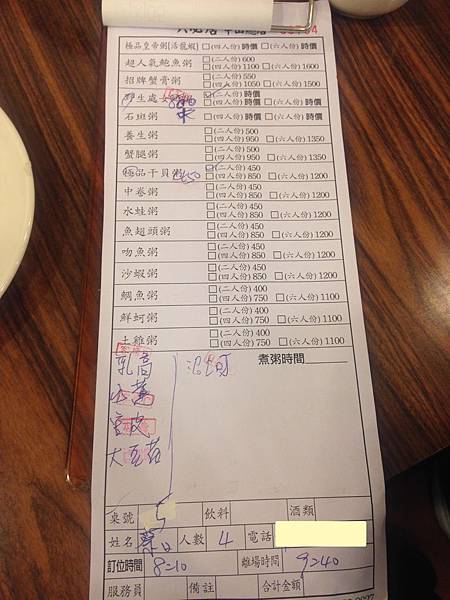 極品皇帝粥[活龍蝦] □(四人份)時價 □(六人份)時價
超人氣鮑魚粥 □(二人份)600
□(四人份)1100 □(六人份)1600
招牌蟹膏粥 □(二人份)550
□(四人份)1050 □(六人份)1500
生處女 □(二人份)時價
□(四人份)時價 □(六人份)時價
石斑粥 □(四人份)時價 □(六人份)時價
養生粥 □(二人份)500
□(四人份)950 □(六人份)1350
蟹腿粥 □(二人份)500
□(四人份)950 □(六人份)1350
極品干貝粥 □(二人份)450
□(四人份)850 □(六人份)1200
中卷粥 □(二人份)450
□(四人份)850 □(六人份)1200
水蛙粥 □(二人份)450
□(四人份)850 □(六人份)1200
魚翅頭粥 □(二人份)450
□(四人份)850 □(六人份)1200
吻魚粥 □(二人份)450
□(四人份)850 □(六人份)1200
沙蝦粥 □(二人份)450
□(四人份)850 □(六人份)1200
鯛魚粥 □(二人份)400
□(四人份)750 □(六人份)1100
鮮蚵粥 □(二人份)400
□(四人份)750 □(六人份)1100
土雞粥 □(二人份)400
□(四人份)750 □(六人份)1100
煮粥時間
桌號 5 飲料 酒類
姓名 人數 4 電話
訂位時間 8=10 離場時間 9=40
服務員 備註 合計金額